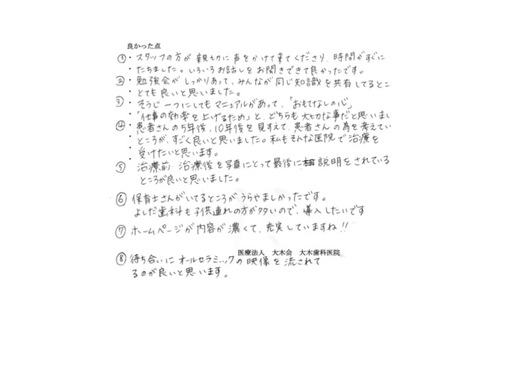 良かった点
①・スタッフの方が親切に声をかけて来てくださり、時間がすぐに
たちました。いろいろお話しをお聞きできて良かったです。
②・勉強会がしっかりあって、みんなが同じ知識を共有してるとこ
とても良いと思いました。
③・そうじ一つにしてもマニュアルがあって、「おもてなしの心」
「仕事の効率を上げるため」と、どちらも大切な事だと思いまし
④・患者さんの5年後、10年後を見すえて、患者さんの為を考えてい
ところが、すごく良いと思いました。私もそんな医院で治療を
受けたいと思います。
⑤・治療前 治療後を写真にとって最後に説明をされている
ところが良いと思いました。
⑥ 保育士さんがいてるところがうらやましかったです。
よしだ歯科も子供連れの方が多いので、導入したいです
⑦ ホームページが内容が濃くて、充実していますね!!
医療法人 大木会 大木歯科医院
⑧ 待ち合いにオールセラミックの映像を流されて
るのが良いと思います。